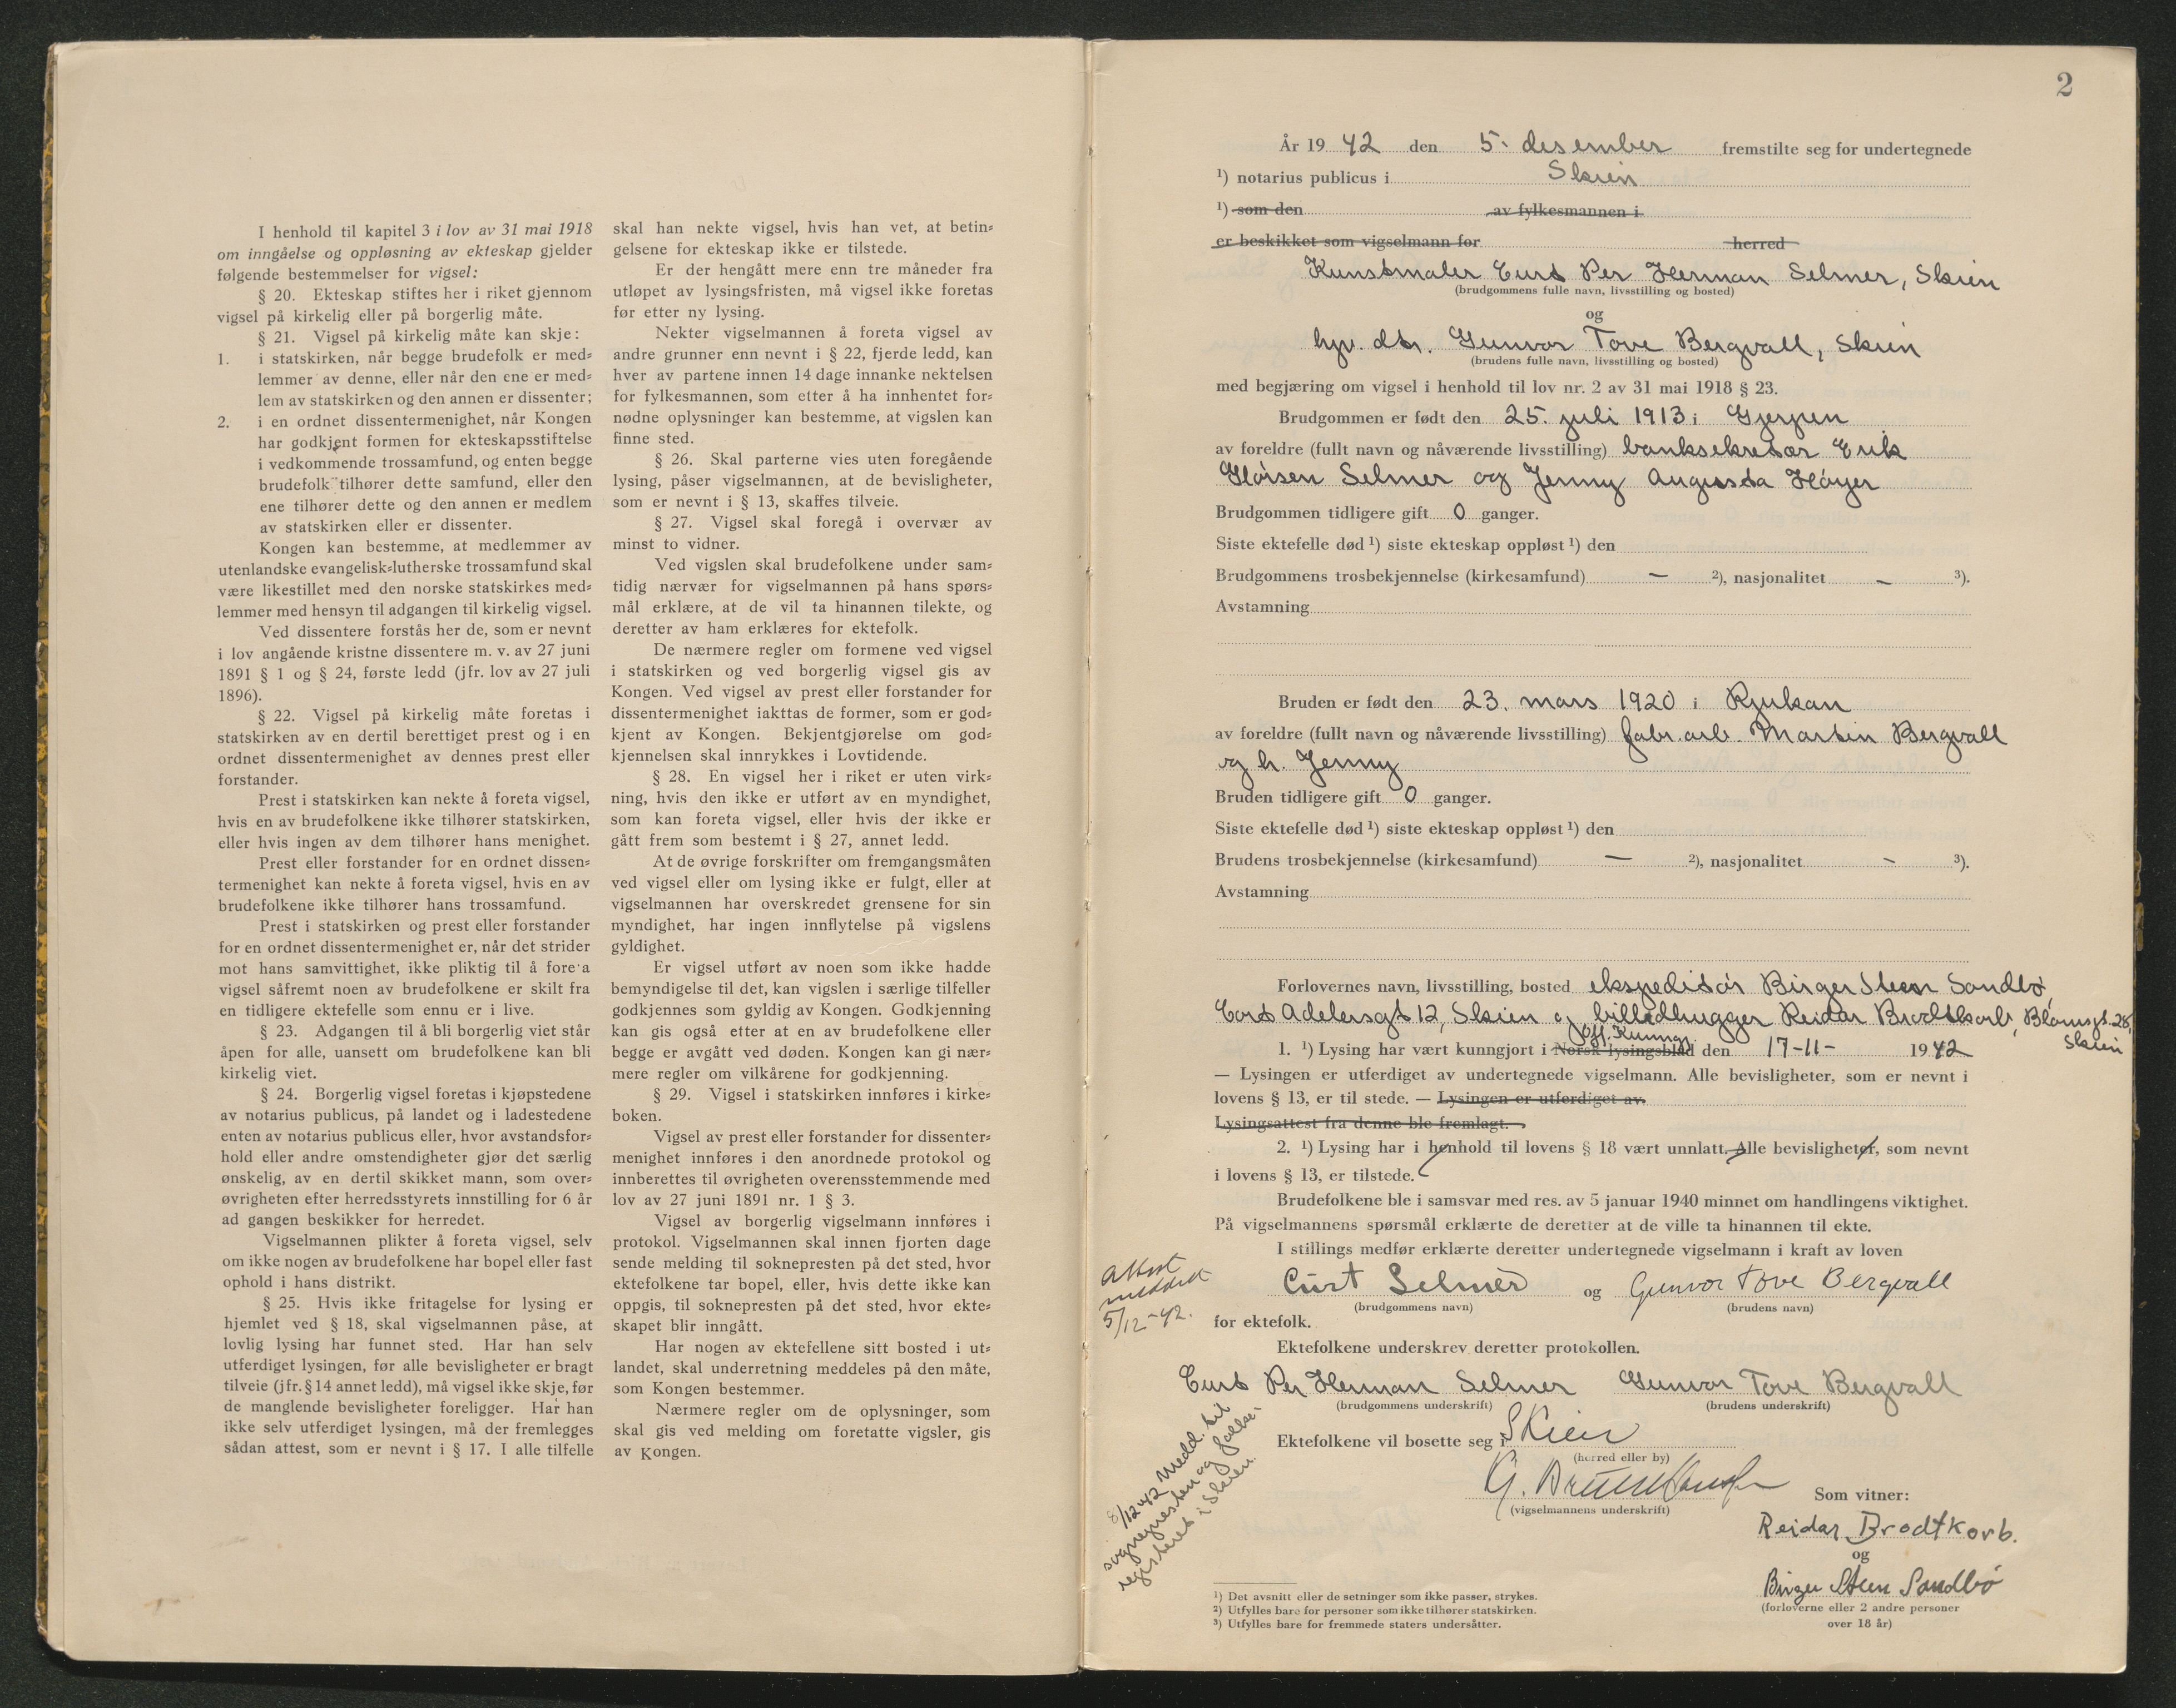 I henhold til kapitel 3 i lov av 31 mai 1918
om inngåelse og oppløsning av ekteskap gjelder
følgende bestemmelser for vigsel:
§ 20. Ekteskap stiftes her i riket gjennom
vigsel på kirkelig eller på borgerlig måte.
§ 21. Vigsel på kirkelig måte kan skje:
1. i statskirken, når begge brudefolk er med=
lemmer av denne, eller når den ene er med=
lem av statskirken og den annen er dissenter;
2. i en ordnet dissentermenighet, når Kongen
har godkjent formen for ekteskapsstiftelse
i vedkommende trossamfund, og enten begge
brudefolk tilhører dette samfund, eller den
ene tilhører dette og den annen er medlem
av statskirken eller er dissenter.
Kongen kan bestemme, at medlemmer av
utenlandske evangelisk=lutherske trossamfund skal
være likestillet med den norske statskirkes med=
lemmer med hensyn til adgangen til kirkelig vigsel.
Ved dissentere forstås her de, som er nevnt
i lov angående kristne dissentere m. v. av 27 juni
1891 § 1 og § 24, første ledd (jfr. lov av 27 juli
1896).
§ 22. Vigsel på kirkelig måte foretas i
statskirken av en dertil berettiget prest og i en
ordnet dissentermenighet av dennes prest eller
forstander.
Prest i statskirken kan nekte å foreta vigsel,
hvis en av brudefolkene ikke tilhører statskirken,
eller hvis ingen av dem tilhører hans menighet.
Prest eller forstander for en ordnet dissen=
termenighet kan nekte å foreta vigsel, hvis en av
brudefolkene ikke tilhører hans trossamfund.
Prest i statskirken og prest eller forstander
for en ordnet dissentermenighet er, når det strider
mot hans samvittighet, ikke pliktig til å fore a
vigsel såfremt noen av brudefolkene er skilt fra
en tidligere ektefelle som ennu er i live.
§ 23. Adgangen til å bli borgerlig viet står
åpen for alle, uansett om brudefolkene kan bli
kirkelig viet.
§ 24. Borgerlig vigsel foretas i kjøpstedene
av notarius publicus, på landet og i ladestedene
enten av notarius publicus eller, hvor avstandsfor=
hold eller andre omstendigheter gjør det særlig
ønskelig, av en dertil skikket mann, som over=
øvrigheten efter herredsstyrets innstilling for 6 år
ad gangen beskikker for herredet.
Vigselmannen plikter å foreta vigsel, selv
om ikke nogen av brudefolkene har bopel eller fast
ophold i hans distrikt.
§ 25. Hvis ikke fritagelse for lysing er
hjemlet ved § 18, skal vigselmannen påse, at
lovlig lysing har funnet sted. Har han selv
utferdiget lysingen, før alle bevisligheter er bragt
tilveie (jfr. § 14 annet ledd), må vigsel ikke skje, før
de manglende bevisligheter foreligger. Har han
ikke selv utferdiget lysingen, må der fremlegges
sådan attest, som er nevnt i § 17. I alle tilfelle
skal han nekte vigsel, hvis han vet, at betin=
gelsene for ekteskap ikke er tilstede.
Er der hengått mere enn tre måneder fra
utløpet av lysingsfristen, må vigsel ikke foretas
før etter ny lysing.
Nekter vigselmannen å foreta vigsel av
andre grunner enn nevnt i § 22, fjerde ledd, kan
hver av partene innen 14 dage innanke nektelsen
for fylkesmannen, som etter å ha innhentet for=
nødne oplysninger kan bestemme, at vigslen kan
finne sted.
§ 26. Skal parterne vies uten foregående
lysing, påser vigselmannen, at de bevisligheter,
som er nevnt i § 13, skaffes tilveie.
§ 27. Vigsel skal foregå i overvær av
minst to vidner.
Ved vigslen skal brudefolkene under sam=
tidig nærvær for vigselmannen på hans spørs=
mål erklære, at de vil ta hinannen tilekte, og
deretter av ham erklæres for ektefolk.
De nærmere regler om formene ved vigsel
i statskirken og ved borgerlig vigsel gis av
Kongen. Ved vigsel av prest eller forstander for
dissentermenighet iakttas de former, som er god=
kjent av Kongen. Bekjentgjørelse om god=
kjennelsen skal innrykkes i Lovtidende.
§ 28. En vigsel her i riket er uten virk=
ning, hvis den ikke er utført av en myndighet,
som kan foreta vigsel, eller hvis der ikke er
gått frem som bestemt i § 27, annet ledd.
At de øvrige forskrifter om fremgangsmåten
ved vigsel eller om lysing ikke er fulgt, eller at
vigselmannen har overskredet grensene for sin
myndighet, har ingen innflytelse på vigslens
gyldighet.
Er vigsel utført av noen som ikke hadde
bemyndigelse til det, kan vigslen i særlige tilfeller
godkjennes som gyldig av Kongen. Godkjenning
kan gis også etter at en av brudefolkene eller
begge er avgått ved døden. Kongen kan gi nær=
mere regler om vilkårene for godkjenning.
§ 29. Vigsel i statskirken innføres i kirke=
boken.
Vigsel av prest eller forstander for dissenter=
menighet innføres i den anordnede protokol og
innberettes til øvrigheten overensstemmende med
lov av 27 juni 1891 nr. 1 § 3.
Vigsel av borgerlig vigselmann innføres i
protokol. Vigselmannen skal innen fjorten dage
sende melding til soknepresten på det sted, hvor
ektefolkene tar bopel, eller, hvis dette ikke kan
oppgis, til soknepresten på det sted, hvor ekte=
skapet blir inngått.
Har nogen av ektefellene sitt bosted i ut=
landet, skal underretning meddeles på den måte,
som Kongen bestemmer.
Nærmere regler om de oplysninger, som
skal gis ved melding om foretatte vigsler, gis
av Kongen.
2
År 19 42 den 5. desember fremstilte seg for undertegnede
¹) notarius publicus i Skien
¹) som den av fylkesmannen i
er beskikket som vigselmann for herred
Kunstmaler Curt Per Herman Selmer, Skien
(brudgommens fulle navn, livsstilling og bosted)
og
hjv. dtr. Gunvor Tove Bergvall, Skien
(brudens fulle navn, livsstilling og bosted)
med begjæring om vigsel i henhold til lov nr. 2 av 31 mai 1918 § 23.
Brudgommen er født den 25. juli 1913 i Gjerpen
av foreldre (fullt navn og nåværende livsstilling) banksekretær Erik
Høisen Selmer og Jenny Augusta Høyer
Brudgommen tidligere gift 0 ganger.
Siste ektefelle død ¹) siste ekteskap oppløst ¹) den
Brudgommens trosbekjennelse (kirkesamfund) — ²), nasjonalitet — ³).
Avstamning
Bruden er født den 23. mars 1920 i Rjukan
av foreldre (fullt navn og nåværende livsstilling) fabr.arb. Martin Bergvall
og h. Jenny
Bruden tidligere gift 0 ganger.
Siste ektefelle død ¹) siste ekteskap oppløst ¹) den
Brudens trosbekjennelse (kirkesamfund) — ²), nasjonalitet — ³).
Avstamning
Forlovernes navn, livsstilling, bosted ekspeditør Birger Steen Sandbø,
Cort Adelersgt 12, Skien og billedhugger Reidar Brodtkorb, Blomsgt. 28,
Skien
Off. Kunngj.
1. ¹) Lysing har vært kunngjort i Norsk lysingsblad den 17-11- 19 42
— Lysingen er utferdiget av undertegnede vigselmann. Alle bevisligheter, som er nevnt i
lovens § 13, er til stede. — Lysingen er utferdiget av.
Lysingsattest fra denne ble fremlagt. —
2. ¹) Lysing har i henhold til lovens § 18 vært unnlatt. Alle bevisligheter, som nevnt
i lovens § 13, er tilstede.
Brudefolkene ble i samsvar med res. av 5 januar 1940 minnet om handlingens viktighet.
På vigselmannens spørsmål erklærte de deretter at de ville ta hinannen til ekte.
I stillings medfør erklærte deretter undertegnede vigselmann i kraft av loven
Attest
meddelt
5/12-42.
Curt Selmer og Gunvor Tove Bergvall
(brudgommens navn) (brudens navn)
for ektefolk.
Ektefolkene underskrev deretter protokollen.
Curt Per Herman Selmer Gunvor Tove Bergvall
(brudgommens underskrift) (brudens underskrift)
8/12-42 Medd. til
sognepresten og fødsels-
registeret i Skien.
Ektefolkene vil bosette seg i Skien
(herred eller by)
(vigselmannens underskrift)
Som vitner:
Reidar Brodtkorb.
og
Birger Steen Sandbø
(forloverne eller 2 andre personer
over 18 år)
¹) Det avsnitt eller de setninger som ikke passer, strykes.
²) Utfylles bare for personer som ikke tilhører statskirken.
³) Utfylles bare for fremmede staters undersåtter.